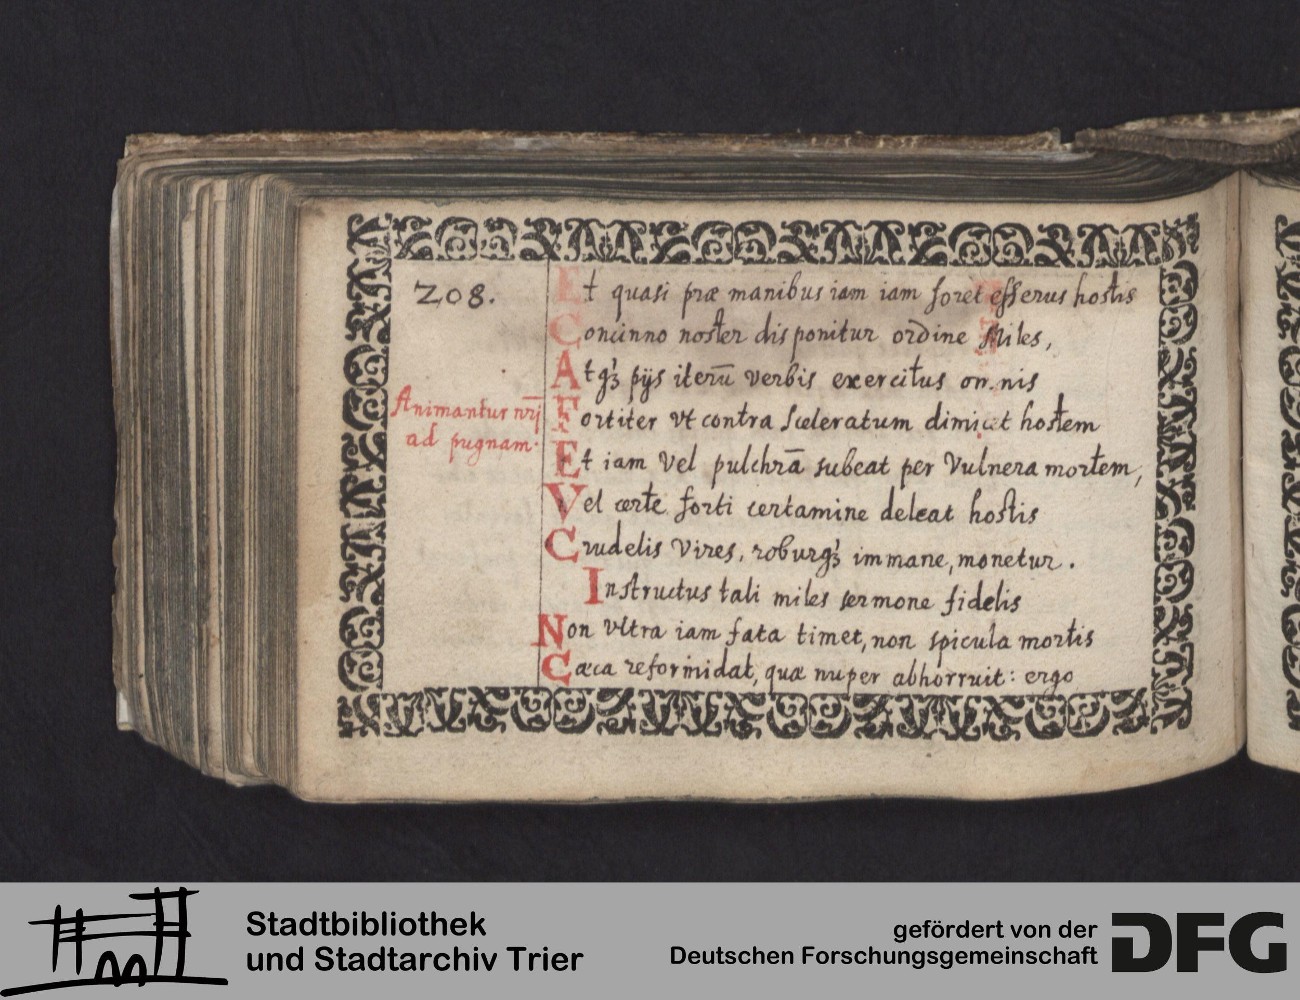 208.
Et quasi præ manibus iam iam foret efferus hostis
Concinno noster disponitur ordine Miles,
Atqꝫ pijs iterū verbis exercitus omnis
Animantur nrĩ
ad pugnam.
Fortiter vt contra sceleratum dimicet hostem
Et iam vel pulchrā subeat per vulnera mortem,
Vel certe forti certamine deleat hostis
Crudelis vires, roburqꝫ immane, monetur.
Instructus tali miles sermone fidelis
Non vltra iam fata timet, non spicula mortis
Cæca reformidat, quæ nuper abhorruit: ergo
Stadtbibliothek
und Stadtarchiv Trier
gefördert von der
Deutschen Forschungsgemeinschaft
DFG